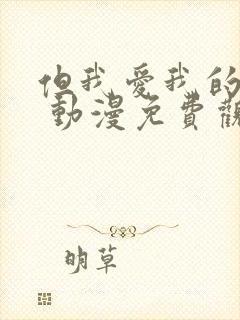 但我愛我的
動漫免費觀
明草